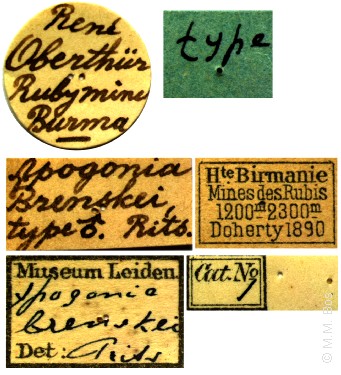 René
Oberthür
Rubymine
Burma
type
Apogonia
Brenskei,
type ♂. Rits.
Hte Birmanie
Mines des Rubis
1200m 2300m
Doherty 1890
Museum Leiden.
Apogonia
brenskei
Det: Rits
Cat. No
© M.M. Bos